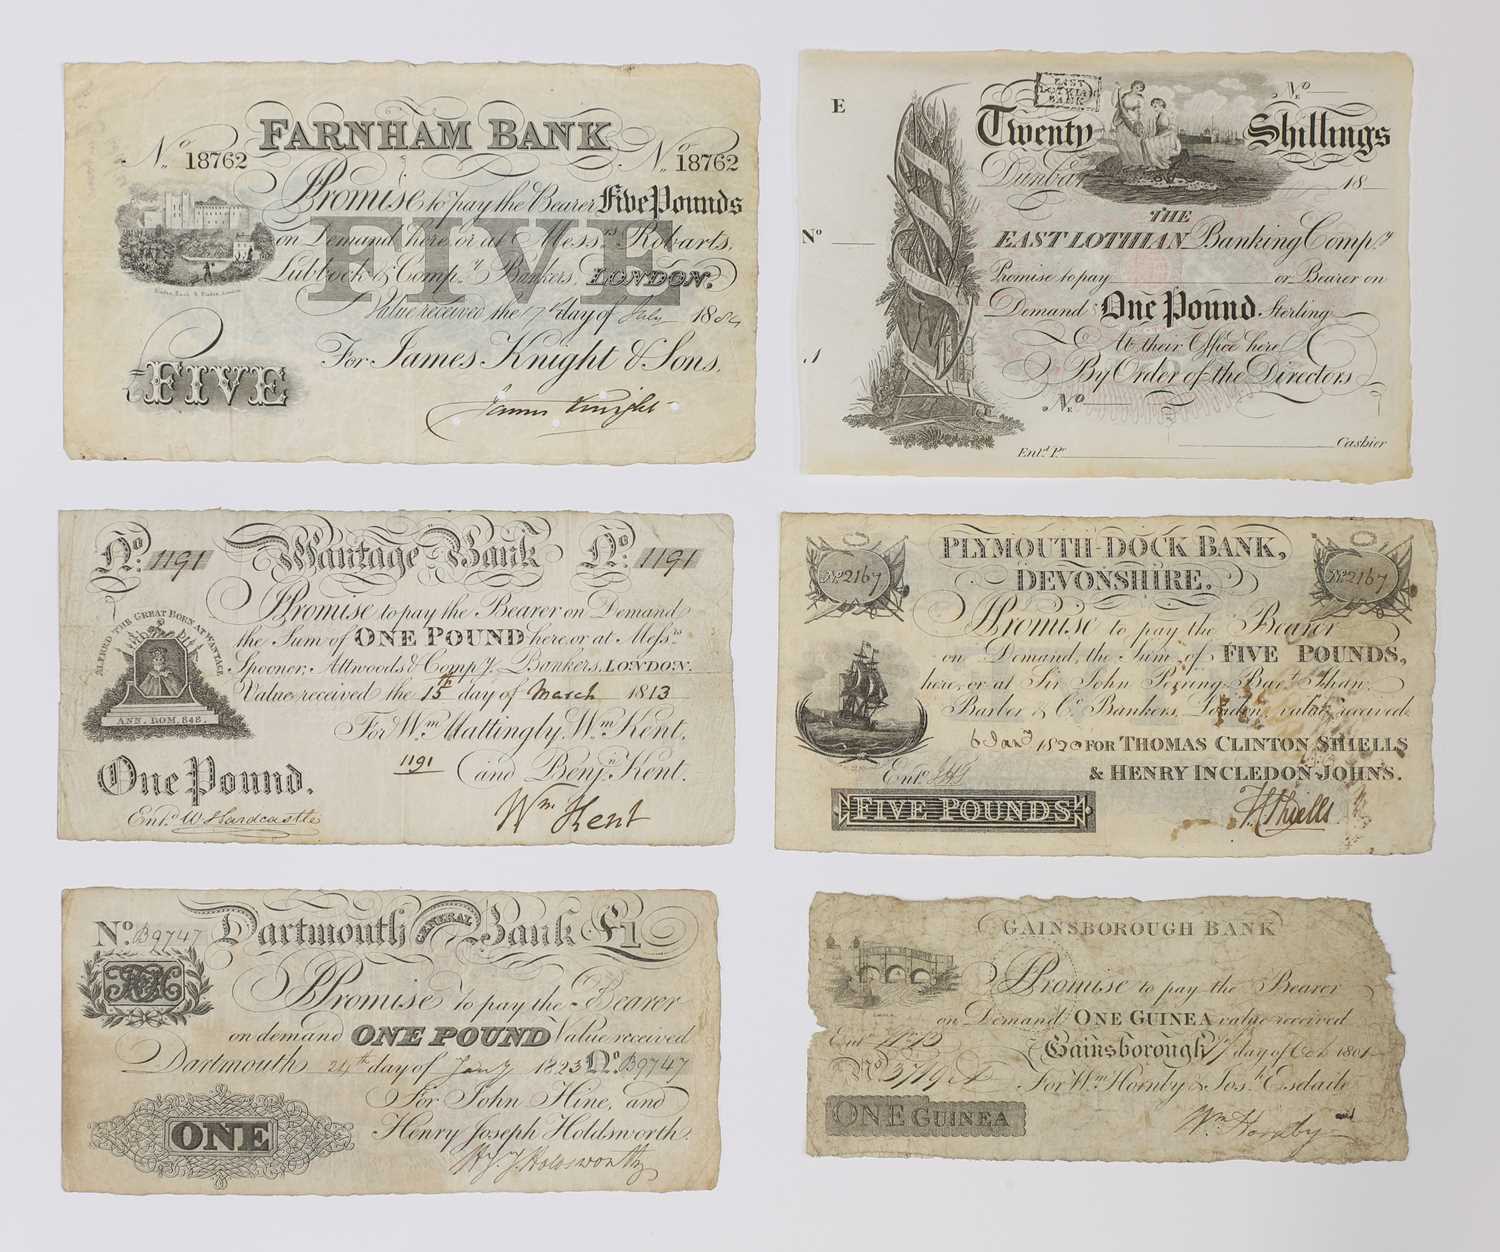 FARNHAM BANK
No. 18762 No. 18762
I Promise to pay the Bearer Five Pounds
on Demand here, or at Messrs. Robarts,
Lubbock & Compy. Bankers, LONDON.
FIVE
Value received the 7th day of July 1884
For James Knight & Sons,
FIVE
James Knight
E
EAST LOTHIAN BANK
No
Twenty Shillings
Dunbar 18
THE
EAST LOTHIAN Banking Compy.
No
Promise to pay or Bearer on
Demand One Pound Sterling
At their Office here
By Order of the Directors
No
Cashier
Entd. Pr.
No. 1191 Wantage Bank No. 1191
I Promise to pay the Bearer on Demand
the Sum of ONE POUND here, or at Messrs.
Spooner, Attwoods & Compy. Bankers, LONDON.
Value received the 15th day of March 1813
ALFRED THE GREAT BORN AT WANTAGE
ANN. DOM. 848.
For Wm. Mattingly, Wm. Kent,
1191 and Benjn. Kent.
One Pound.
Entd. W Hardcastle
Wm Kent
PLYMOUTH-DOCK BANK,
DEVONSHIRE.
No 2167 No 2167
I Promise to pay the Bearer
on Demand, the Sum of FIVE POUNDS,
here, or at Sir John Perring, Bart. Shaw,
Barber & Co. Bankers, London, value received.
6 Jany 1820 FOR THOMAS CLINTON SHIELLS
Entd. & HENRY INCLEDON JOHNS.
FIVE POUNDS
No. B9747 Dartmouth GENERAL Bank £1
I Promise to pay the Bearer
on demand ONE POUND Value received
Dartmouth 24th day of Jany 1823 No. B9747
For John Hine, and
Henry Joseph Holdsworth.
ONE
H. J. Holdsworth
GAINSBOROUGH BANK
I Promise to pay the Bearer
on Demand ONE GUINEA value received
Entd. Gainsborough day of Oct 1801
No For Wm. Hornby & Josh. Esdaile
ONE GUINEA
Wm Hornby